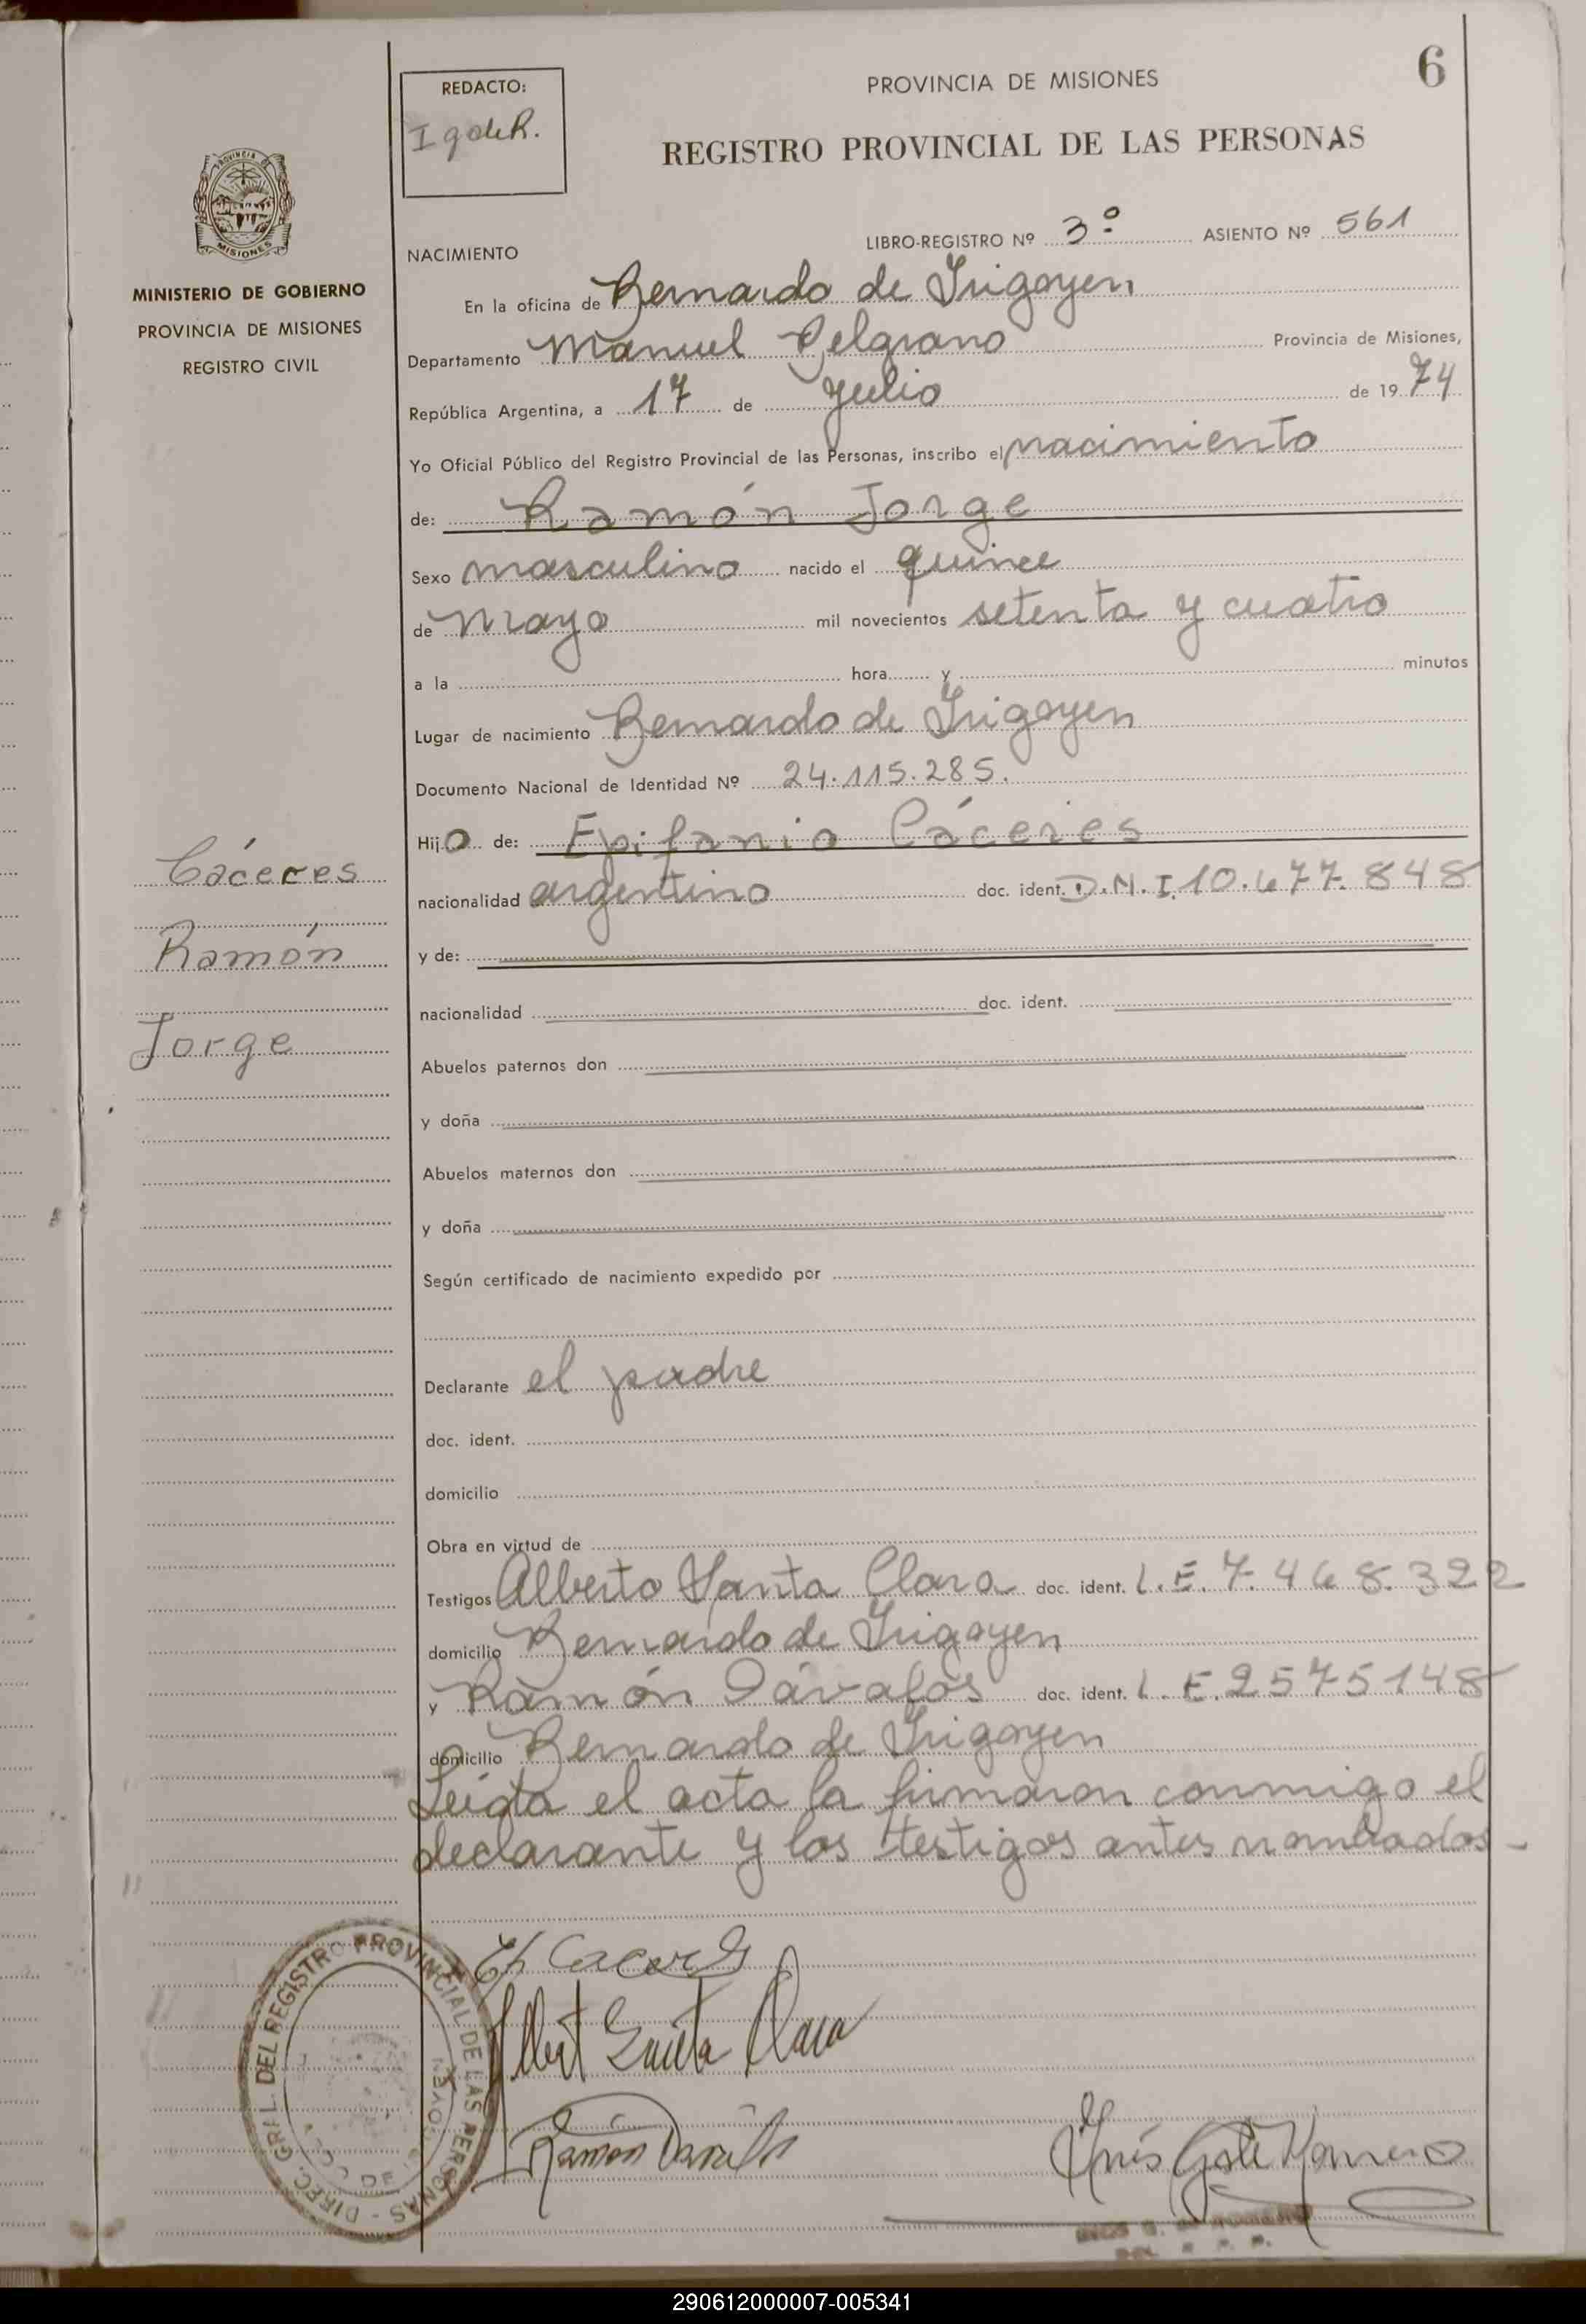 6
REDACTO:
I g de R.
PROVINCIA DE MISIONES
REGISTRO PROVINCIAL DE LAS PERSONAS
MISIONES
MINISTERIO DE GOBIERNO
PROVINCIA DE MISIONES
REGISTRO CIVIL
NACIMIENTO
LIBRO-REGISTRO Nº 3º ASIENTO Nº 561
En la oficina de Bernardo de Irigoyen
Departamento Manuel Belgrano Provincia de Misiones,
República Argentina, a 17 de Julio de 1974
Yo Oficial Público del Registro Provincial de las Personas, inscribo el nacimiento
de: Ramón Jorge
Sexo masculino nacido el quince
de Mayo mil novecientos setenta y cuatro
a la hora y minutos
Lugar de nacimiento Bernardo de Irigoyen
Documento Nacional de Identidad Nº 24.115.285.
Hijo de: Epifanio Cáceres
nacionalidad argentino doc. ident. D.N.I. 10.677.848
y de:
nacionalidad doc. ident.
Abuelos paternos don
y doña
Abuelos maternos don
y doña
Cáceres
Ramón
Jorge
Según certificado de nacimiento expedido por
Declarante el padre
doc. ident.
domicilio
Obra en virtud de
Testigos Alberto Santa Clara doc. ident. L.E. 7.468.322
domicilio Bernardo de Irigoyen
y Ramón Dávalos doc. ident. L.E. 2575148
domicilio Bernardo de Irigoyen
Leida el acta la firmaron conmigo el
declarante y los testigos antes nombrados -
Ep Caceres
Albert Santa Clara
Ramón Davalo
Inés G de Romero
DIREC. GRAL. DEL REGISTRO PROVINCIAL DE LAS PERSONAS -
290612000007-005341